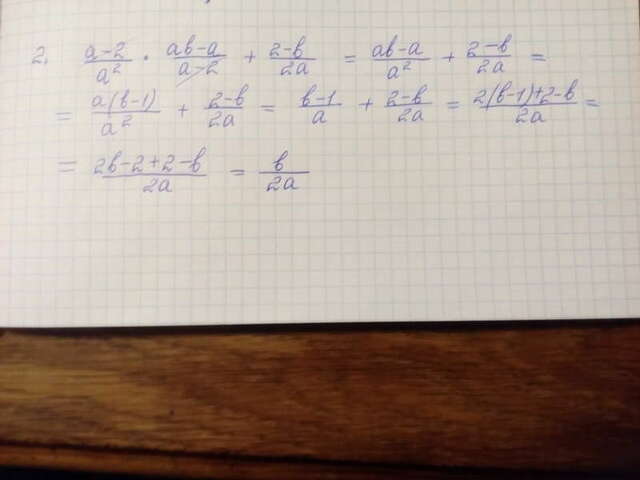 2. (a-2)/a² · (ab-a)/(a-2) + (2-b)/2a = (ab-a)/a² + (2-b)/2a =
= a(b-1)/a² + (2-b)/2a = (b-1)/a + (2-b)/2a = (2(b-1)+2-b)/2a =
= (2b-2+2-b)/2a = b/2a